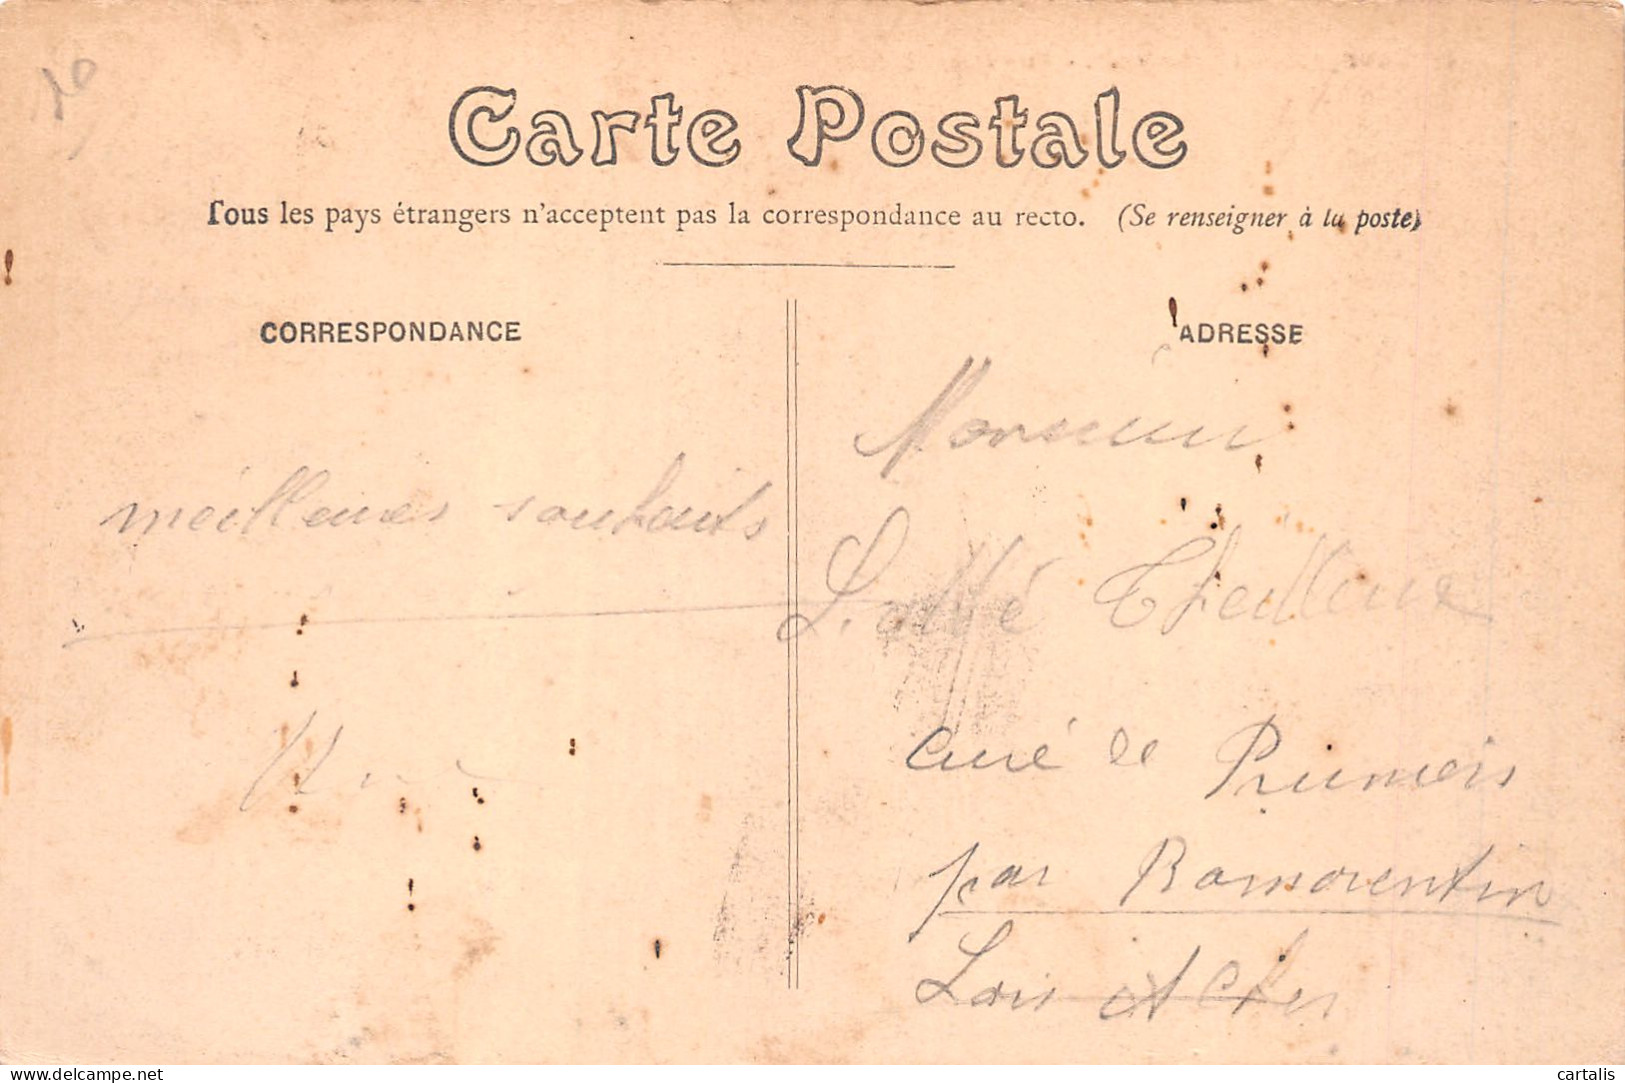 10
Carte Postale
Tous les pays étrangers n'acceptent pas la correspondance au recto. (Se renseigner à la poste)
CORRESPONDANCE
meilleures souhaits
ADRESSE
Monsieur
L'abbé
Curé de Pruniers
par Romorentin
Loir et Cher
delcampe.net
cartalis